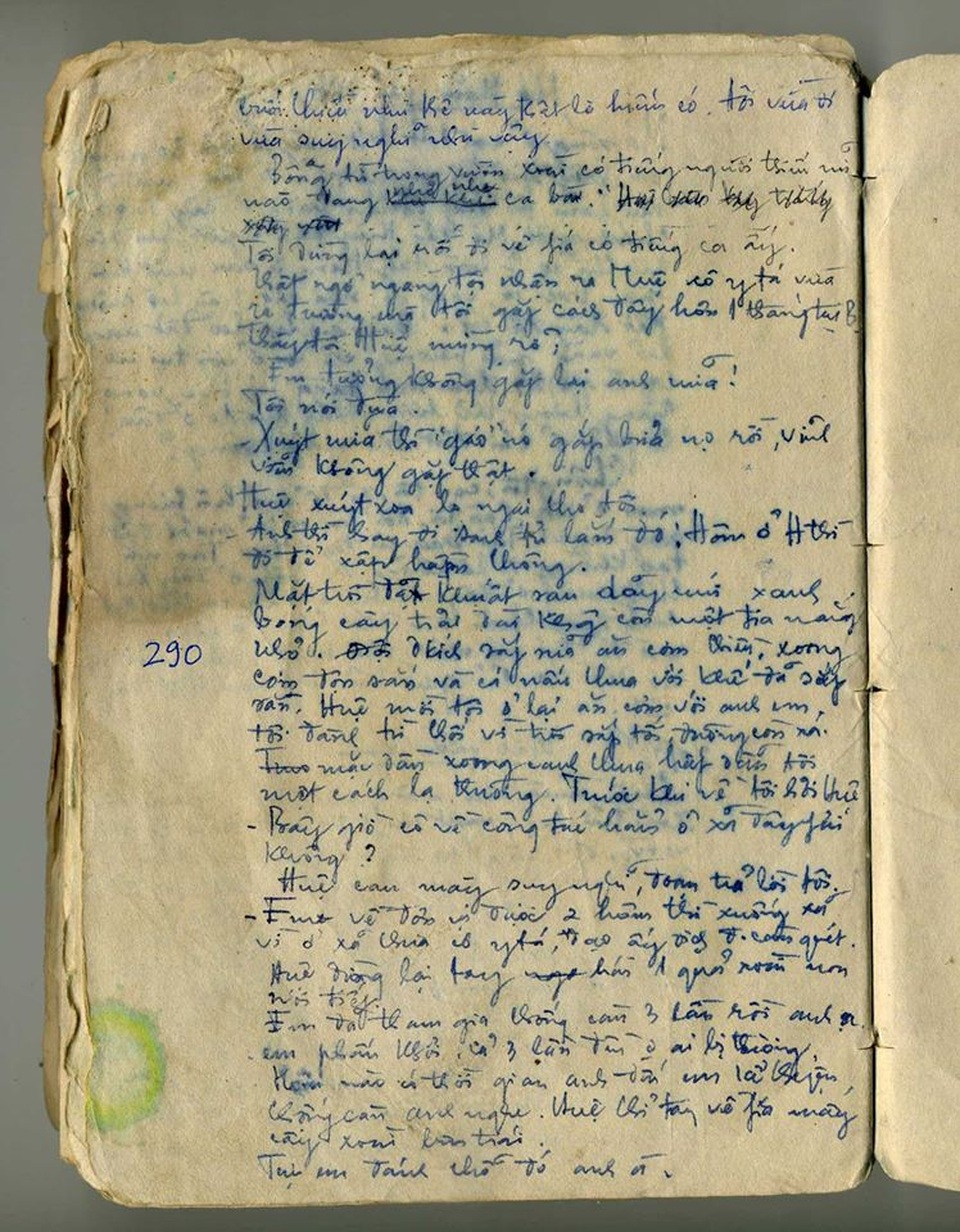 như kẻ này thật là hiếm có. Tôi vừa đi
vừa suy nghĩ như vậy.
Bỗng từ trong vườn xoài có tiếng người thiếu nữ
nào đang nhè nhẹ ca bài: "
Tôi dừng lại rồi đi về phía có tiếng ca ấy.
Thật ngỡ ngàng tôi nhận ra Huê cô y tá vừa
ra trường mà tôi gặp cách đây hơn 1 tháng tại B
thấy tôi Huê mừng rỡ;
Em tưởng không gặp lại anh nữa!
Tôi nói đùa.
- Xuýt nữa thì "gáo" nó gặp rồi,
viễn không gặp thật.
Huê xuýt xoa lo ngại cho tôi.
- Anh thì hay đi lắm đó; Hôm ở H thì
đó để xập hầm chông.
Mặt trời khuất sau dãy núi xanh
Bóng cây trải dài không còn một tia nắng
nhỏ. ăn cơm chiều, xoong
cơm độn sắn và cá nấu chua với khế đã sẵn
sàn. Huê mời tôi ở lại ăn cơm với anh em.
tôi đành từ chối vì trời sắp tối, đường còn xa.
mặc dầu xoong canh chua hấp dẫn tôi
một cách lạ thường. Trước khi về tôi hỏi Huê
- Bây giờ cô về công tác hẳn ở xã đây phải
không?
Huê cau mày suy nghĩ, đoạn trả lời tôi.
- Em về đơn vị được 2 hôm thì xuống xã
vì ở xã chưa có y tá, dạo ấy địch đi càn quét.
Huê dừng lại tay hái 1 quả xoài non
nói tiếp.
Em đã tham gia chống càn 3 lần rồi anh ạ.
em phấn khởi, cả 3 lần đều o ai bị thương,
Hôm nào có thời gian anh đến em kể chuyện
chống càn anh nghe. Huê chỉ tay về phía mấy
cây xoài bên trái.
Tụi em đánh chỗ đó anh ạ.
290